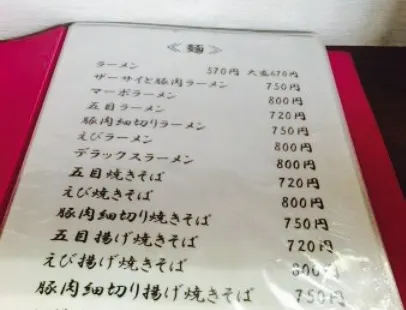 ≪ 麺 ≫
ラーメン 570円 大盛670円
ザーサイと豚肉ラーメン 750円
マーボラーメン 800円
五目ラーメン 720円
豚肉細切りラーメン 750円
えびラーメン 800円
デラックスラーメン 800円
五目焼きそば 720円
えび焼きそば 800円
豚肉細切り焼きそば 750円
五目揚げ焼きそば 720円
えび揚げ焼きそば 800円
豚肉細切り揚げ焼きそば 750円